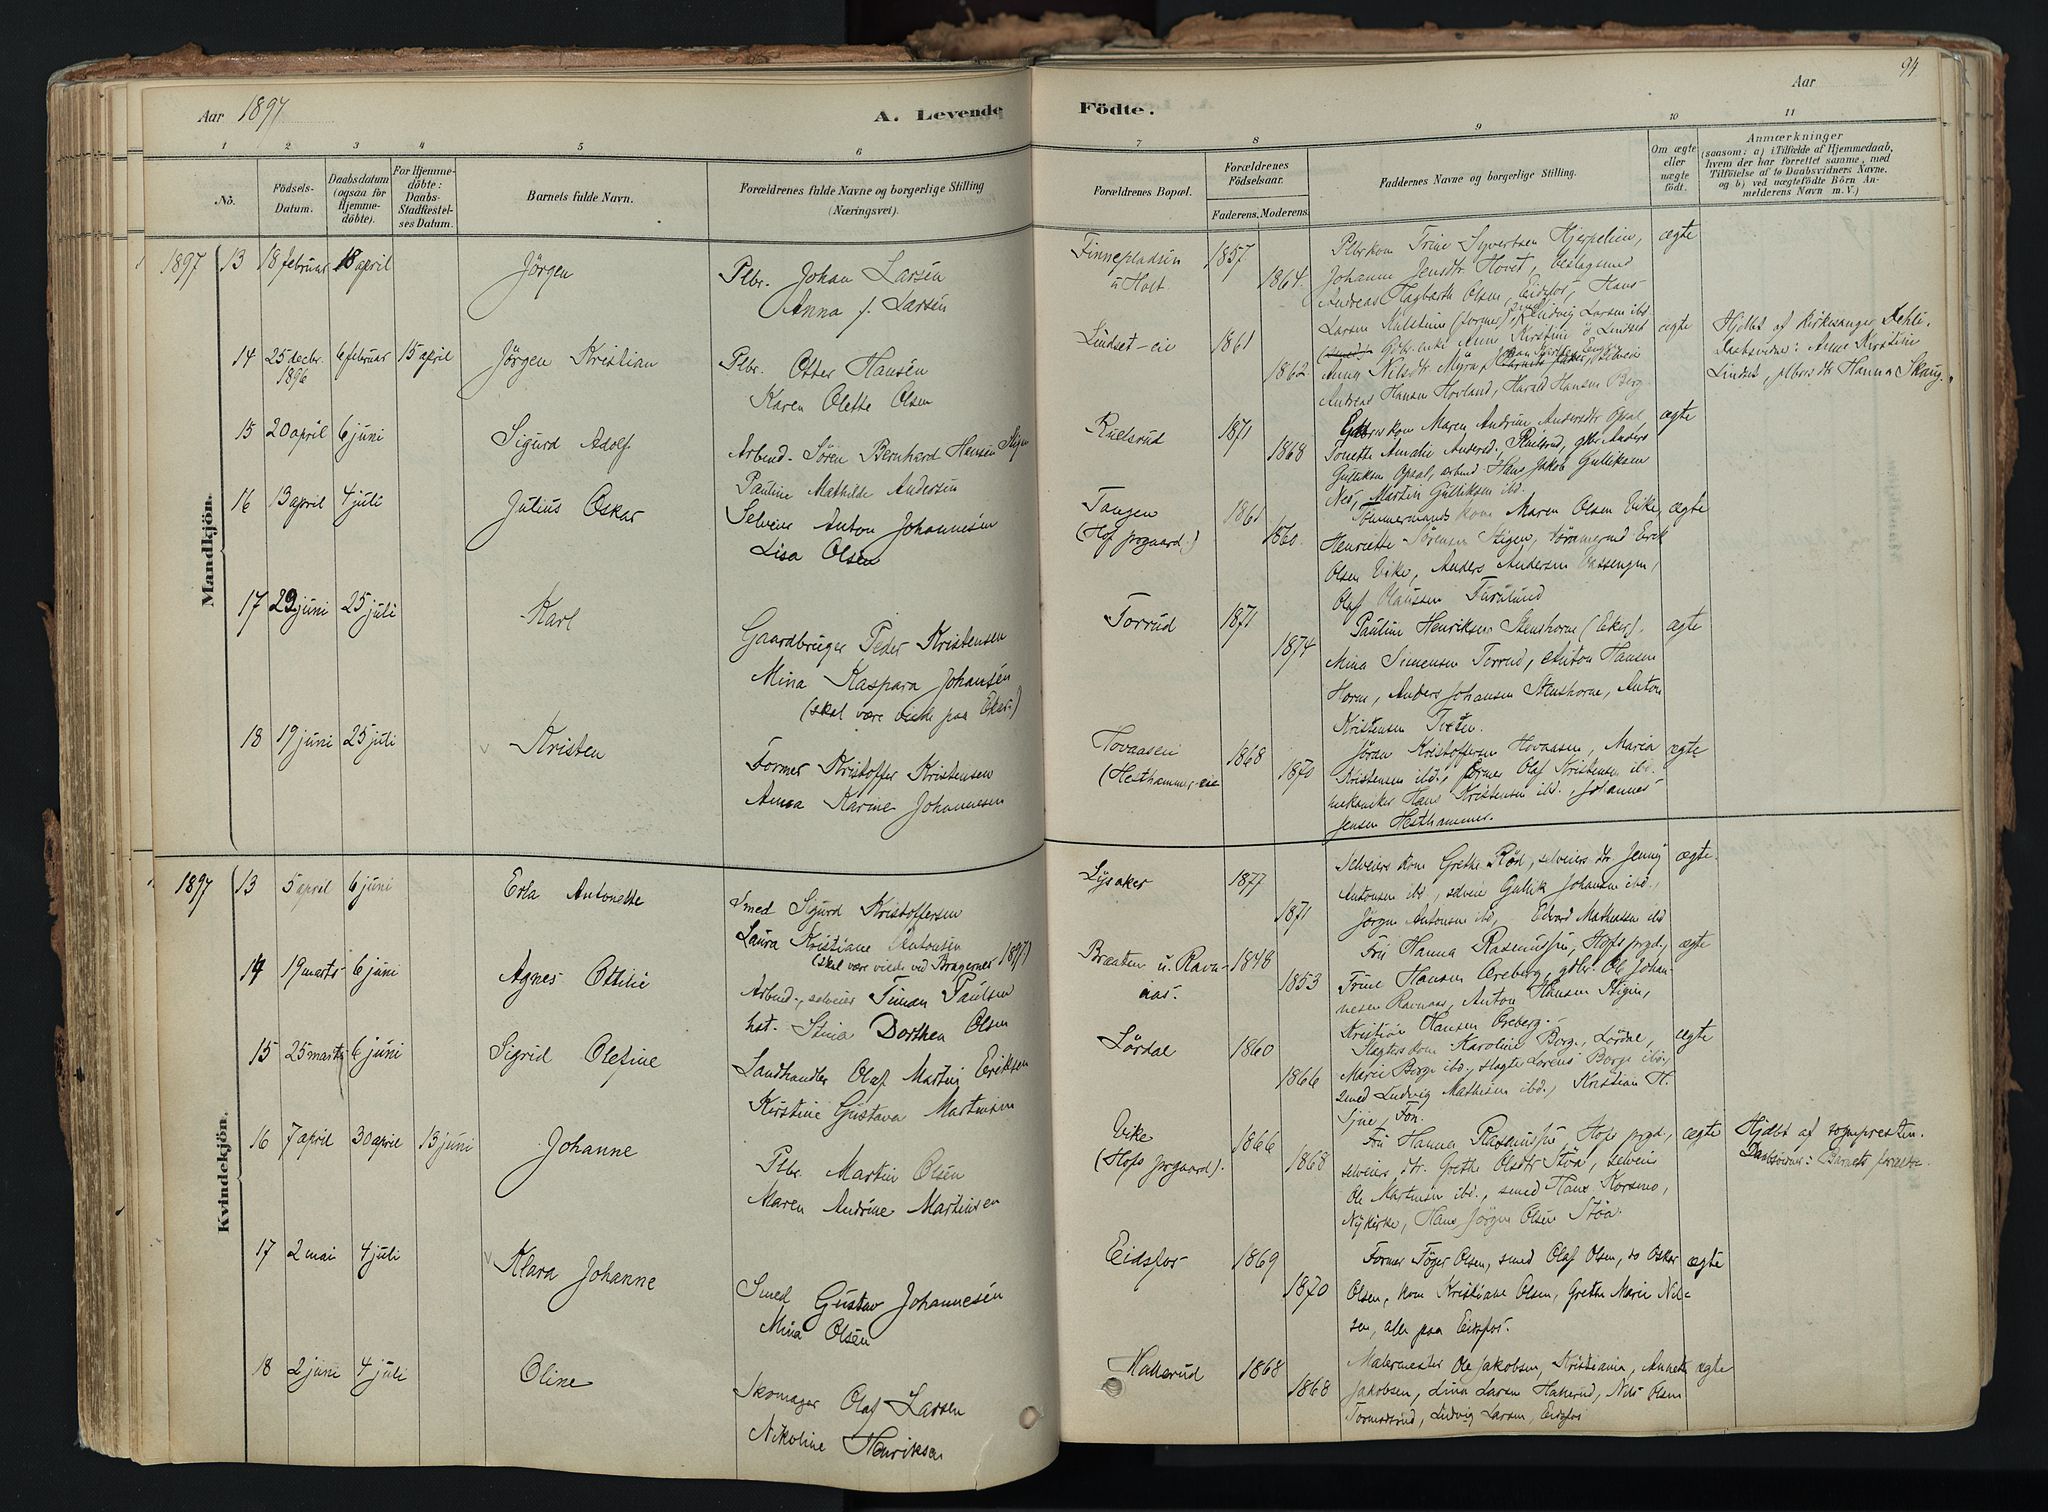 Aar 1897
A. Levende
1 2 3 4 5 6
No.
Födsels-Datum.
Daabsdatum (ogsaa for Hjemmedöbte).
For Hjemmedöbte: Daabs-Stadfæstelses Datum.
Barnets fulde Navn.
Forældrenes fulde Navne og borgerlige Stilling
(Næringsvei).
Mandkjön.
1897 13 18 februar 18 april Jörgen Plbr. Johan Larsen
Anna f. Larsen
14 25 decbr. 1896 6 februar 15 april Jörgen Kristian Plbr. Otter Hansen
Karen Olette Olsen
15 20 april 6 juni Sigurd Adolf Arbmd. Sören Bernhard Hansen Stigen
Pauline Mathilde Andersen
16 13 april 4 juli Julius Oskar Selveier Anton Johannesen
Lisa Olsen
17 29 juni 25 juli Karl Gaardbruger Peder Kristensen
Mina Kaspara Johansen
(skal være viede paa Eker)
18 19 juni 25 juli Kristen Former Kristoffer Kristensen
Anna Karine Johannesen
Kvindekjön.
1897 13 5 april 6 juni Erla Antonette Smed Sigurd Kristoffersen
Laura Kristiane Antonsen
(skal være viede ved Bragernes 1897)
14 19 marts 6 juni Agnes Ottilie Arbmd., selveier Timan Paulsen
hst. Stina Dorthea Olsen
15 25 marts 6 juni Sigrid Olefine Landhandler Olaf Martin Eriksen
Kirstine Gustava Martinsen
16 7 april 30 april 13 juni Johanne Plbr. Martin Olsen
Maren Andrine Martinsen
17 2 mai 4 juli Klara Johanne Smed Gustav Johannesen
Mina Olsen
18 2 juni 4 juli Oline Skomager Olaf Larsen
Nikoline Henriksen
Aar 94
Födte.
7 8 9 10 11
Forældrenes Bopæl.
Forældrenes Födselsaar.
Faderens. Moderens.
Faddernes Navne og borgerlige Stilling.
Om ægte eller uægte födt.
Anmærkninger
(saasom: a) i Tilfælde af Hjemmedaab,
hvem der har forrettet samme, med
Tilföielse af to Daabsvidners Navne,
og b) ved uægtefödte Börn Anmelderens Navn m. V.)
Finnepladsen u Holt 1857 1864. Plbrskone Trine Syvertsen Hjerpelien, ægte
Johanne Jensdtr. Hovet, beslagsmed
Andreas Hagbarth Olsen, Eidsfos, Hans
Larsen (former), Ludvig Larsen ibd.
Lindset-eie 1861 1862. Gbr. enke Anne Kirstine Lindset ægte
Anna Nilsdtr. Myra,
Andreas Hansen Hovland, Harald Hansen Berg.
Hjdbt af kirkesanger Dehli.
Daabsvidner: Anne Kirstine
Lindset, plbrsdtr Hanna Skaug.
Ruelsrud 1871 1868 Maren Andrine Andersdtr Opsal, ægte
Tonette Amalie Andersd. Ruelsrud, gbr Anders
Gulliksen Opsal, arbmd Hans Jakob Gulliksen
Nes, Martin Gulliksen ibd.
Tangen (Hof prgjaard.) 1861 1860. Tömmermands kone Maren Olsen Vike, ægte
Henriette Sörensen Stigen, tömmermd Erik
Olsen Vike, Anders Andersen
Olaf Olaussen Furulund
Torrud 1871 1874 Pauline Henriksen Stenshorne (Eker), ægte
Mina Simensen Torrud, Anton Hansen
Horne, Anders Johansen Stenshorne, Anton
Kristensen Tveten.
Hovaasen (Hesthammer-eie 1868 1870 Jöran Kristoffersen Hovaasen, Maria ægte
Kristensen ibd., former Olaf Kristensen ibd.
mekaniker Hans Kristensen ibd., Johannes
Jensen Hesthammer.
Lysaker 1877 1871 Selveiers kone Grethe Röd, selveiers dtr. Jenny ægte.
Antonsen ibd., selveier Gullik Johansen ibd.,
Jörgen Antonsen ibd., Edvard Mathiassen ibd
Braaten u. Ravnaas. 1848 1853 Fru Hanna Rasmussen, Hofs prgd., ægte
Trine Hansen Oreberg, gdbr. Ole Johannesen Ravnaas, Anton Hansen Stigen,
Kristian Hansen Oreberg.
Lördal 1860 1866 Slagters kone Karoline Borge, Lördal, ægte
Marie Borge ibd., slagter Lorens Borge ibd.,
smed Ludvig Mathisen ibd., Kristian H.
Fon.
Vike (Hofs prgaard). 1866 1868 Fru Hanna Rasmussen, Hofs prgd., ægte
selveiers dtr. Grethe Olsdtr Stöa, selveier
Ole Martinsen ibd., smed Hans Korsmo,
Nykirke, Hans Jörgen Olsen Stöa.
Hjdbt af sognepresten.
Daabsvidner: Barnets forældre
Eidsfos 1869 1870 Former Töger Olsen, smed Olaf Olsen, do Oskar ægte
Olsen, kone Kristiane Olsen, Grethe Marie Nilsen, alle paa Eidsfos.
Hallerud 1868 1868 Malermester Ole Jakobsen, Kristiania, Annette ægte
Jakobsen, Lina Larsen Hallerud, Nils Olsen
Tormodsrud, Ludvig Larsen, Eidsfos